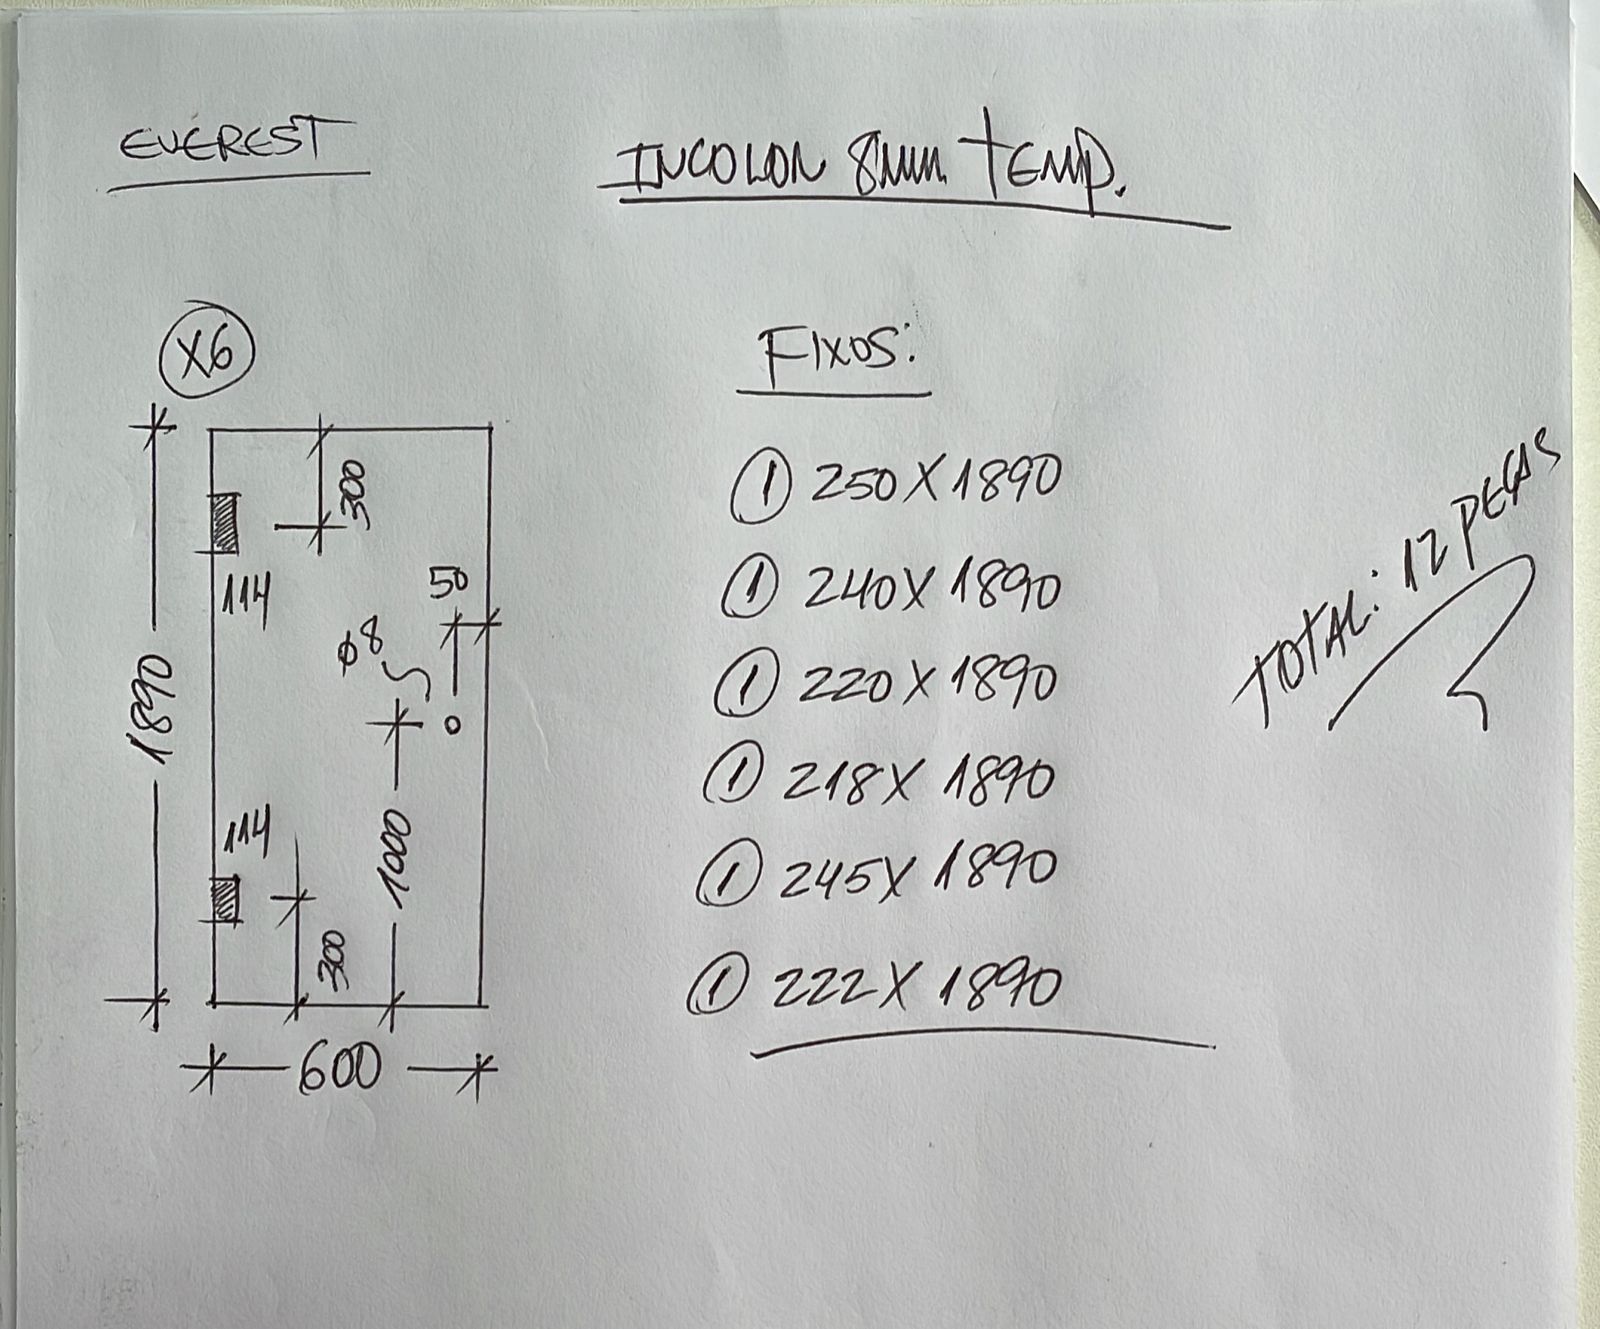 EVEREST
INCOLOR 8mm TEMP.
X6
300
114
50
ø8
1890
114
1000
300
600
FIXOS:
1 250 X 1890
1 240 X 1890
1 220 X 1890
1 218 X 1890
1 245 X 1890
1 222 X 1890
TOTAL: 12 PEÇAS